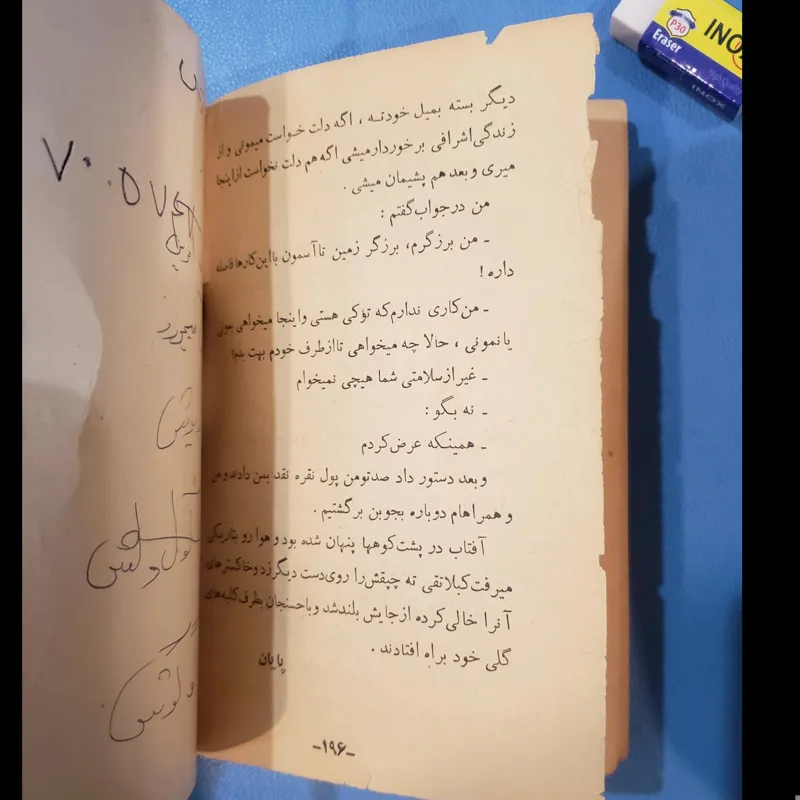 دیگر بسته بمیل خودتـه ، اگه دلت خواست میمونی و از
زندگی اشرافی برخوردار میشی اگه هم دلت نخواست از اینجا
میری و بعد هم پشیمان میشی .
من در جواب گفتم :
ـ من برزگرم، برزگر زمین تا آسمون با این کارها فاصله
داره !
ـ من کاری ندارم که تو کی هستی و اینجا میخواهی بمونی
یا نمونی ، حالا چه میخواهی تا از طرف خودم بهت بدم؟
ـ غیر از سلامتی شما هیچی نمیخوام
ـ نه بگو :
ـ همینکه عرض کردم
و بعد دستور داد صد تومن پول نقره نقد بمن دادند و من
و همراهام دوباره بجوبن برگشتیم .
آفتاب در پشت کوهها پنهان شده بود و هوا رو بتاریکی
میرفت کبلاتقی ته چپقش را روی دست دیگر زد و خاکسترهای
آنرا خالی کرده از جایش بلند شد و با حسنجان بطرف کلبه‌های
گلی خود براه افتادند .
پایان
ـ۱۹۶ـ
۷۰۵۷
P30
Eraser
High Quality